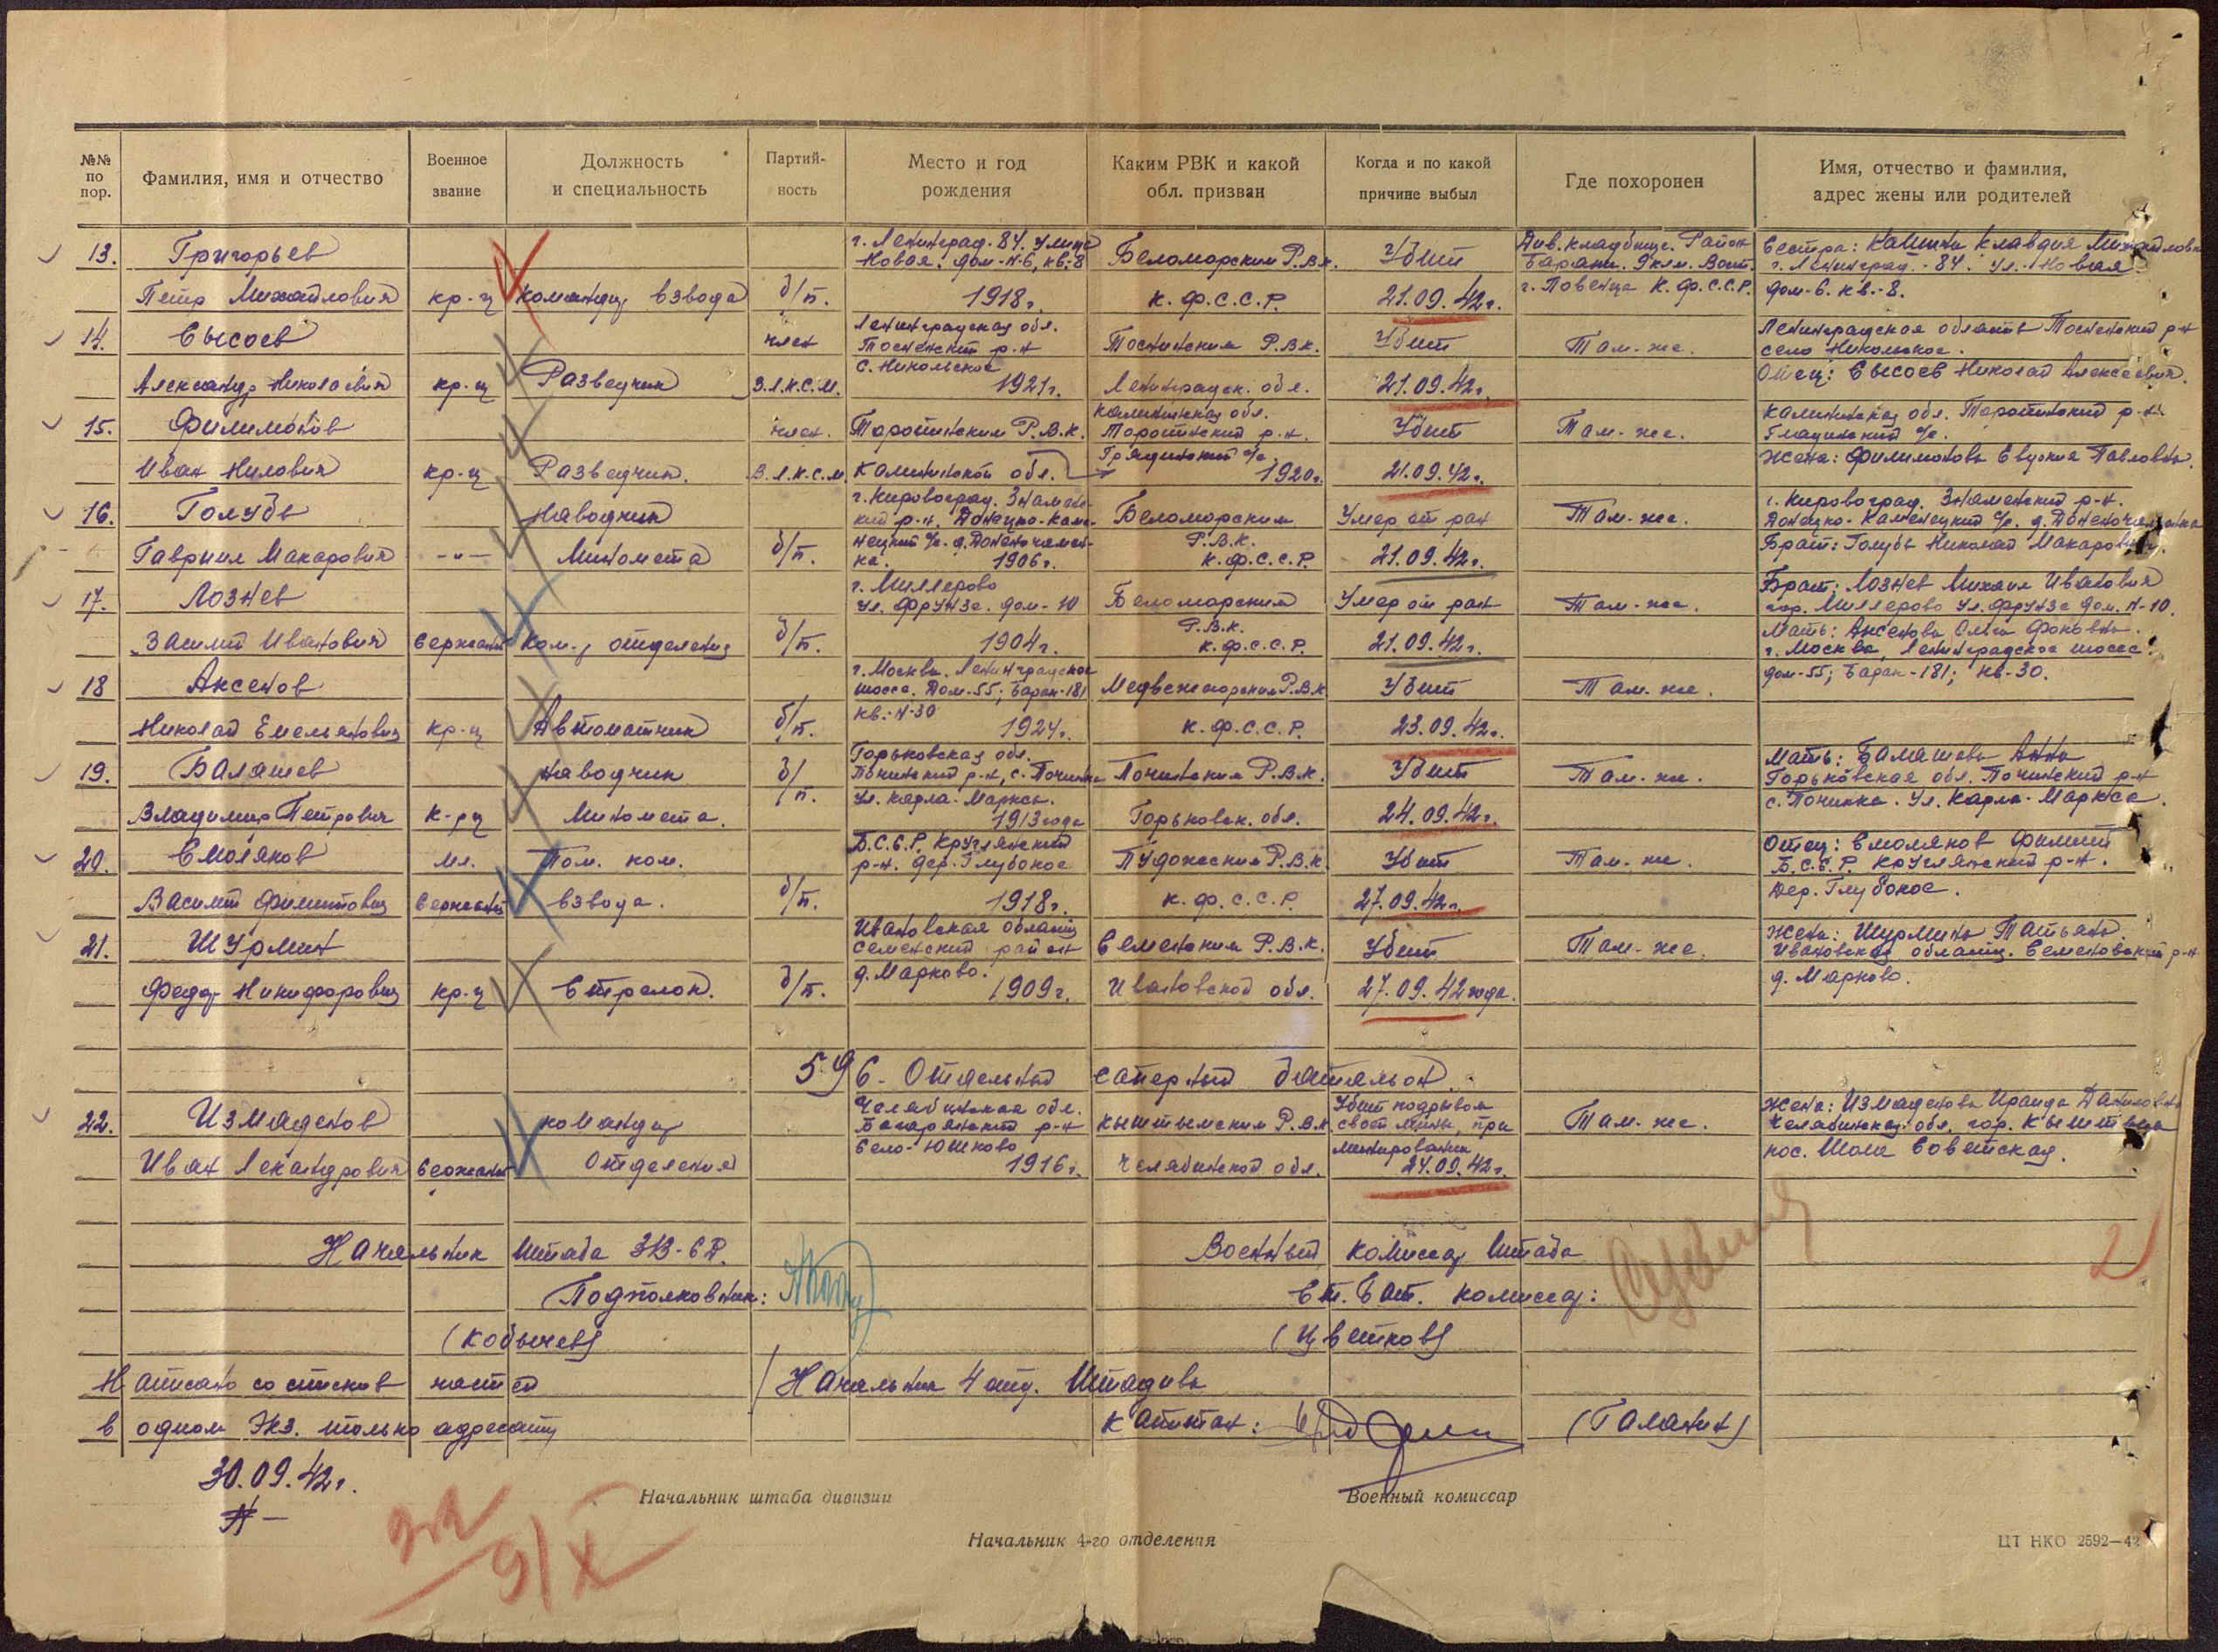 №№ по пор.
Фамилия, имя и отчество
Военное звание
Должность и специальность
Партий-ность
Место и год рождения
Каким РВК и какой обл. призван
Когда и по какой причине выбыл
Где похоронен
Имя, отчество и фамилия, адрес жены или родителей
13. Григорьев
Петр Михайлович кр-ц командир взвода б/п.
г. Ленинград-84. улица
Новая. дом-N-6, кв.-8
1918г.
Беломорским Р.В.К.
К.Ф.С.С.Р.
Убит
21.09.42г.
Див. кладбище. Район
г. Повенца К.Ф.С.С.Р.
Сестра: Клавдия Михайловна
г. Ленинград-84. ул. Новая
дом-6. кв.-8.
14. Сысоев
Александр Николаевич кр-ц Разведчик член В.Л.К.С.М.
Ленинградская обл.
Тосненский р-н
с. Никольское
1921г.
Тоснинским Р.В.К.
Ленинградск. обл.
Убит
21.09.42г.
Там-же.
Ленинградская область Тосненский р-н
село Никольское.
Отец: Сысоев Николай Алексеевич.
15. Филимонов
Иван Нилович кр-ц Разведчик. член. В.Л.К.С.М.
Торопинским Р.В.К.
Калининской обл.
Калининская обл.
Торопинский р-н.
1920г.
Убит
21.09.42г.
Там-же.
Калининская обл. Торопинский р-н.
Жена: Филимонова Евдокия Павловна.
16. Голубь
Гавриил Макарович -"- Наводчик Миномета б/п.
г. Кировоград. Знамен-
ский р-н. Донецко-Каме-
нецкий с/с.
ка. 1906г.
Беломорским
Р.В.К.
К.Ф.С.С.Р.
Умер от ран
21.09.42г.
Там-же.
г. Кировоград. Знаменский р-н.
Донецко-Каменецкий с/с.
Брат: Голубь Николай Макарович.
17. Лознев
Василий Иванович Сержант Ком., отделения б/п.
г. Миллерово
ул. Фрунзе. дом-10
1904г.
Беломорский
Р.В.К.
К.Ф.С.С.Р.
Умер от ран
21.09.42г.
Там-же.
Брат: Лознев Михаил Иванович
гор. Миллерово ул. Фрунзе дом. N-10.
18 Аксенов
Николай Емельянович кр-ц Автоматчик б/п.
г. Москва. Ленинградское
шоссе. Дом-55; Барак-181
кв.-N-30
1924г.
Медвежегорским Р.В.К.
К.Ф.С.С.Р.
Убит
23.09.42г.
Там-же.
Мать: Аксенова Ольга
г. Москва, Ленинградское шоссе.
дом-55; Барак-181; кв-30.
19. Балашев
Владимир Петрович К-рц Наводчик Миномета. б/п.
Горьковская обл.
Починский р-н, с. Починки
ул. Карла-Маркса.
1913года
Починским Р.В.К.
Горьковск. обл.
Убит
24.09.42г.
Там-же.
Мать: Балашева Анна
Горьковская обл. Починский р-н
с. Починка. ул. Карла-Маркса.
20. Смоляков
Василий Филиппович мл. Сержант Пом. ком. взвода. б/п.
Б.С.С.Р. Круглянский
р-н. дер. Глубокое
1918г.
Пудожским Р.В.К.
К.Ф.С.С.Р.
Убит
27.09.42г.
Там-же.
Отец: Смоляков Филипп
Б.С.С.Р. Круглянский р-н.
Дер. Глубокое.
21. Шурмин
Федор Никифорович кр-ц Стрелок. б/п.
Ивановская область
Семенский район
д. Марково.
1909г.
Семенским Р.В.К.
Ивановской обл.
Убит
27.09.42года.
Там-же.
Жена: Шурмина Татьяна.
Ивановская область. Семеновский р-н
д. Марково.
596- Отдельный саперный батальон.
22. Измоденов
Иван Лександрович Сержант командир Отделения
Челябинская обл.
Багарякский р-н
село-Юшково
1916г.
Кыштымским Р.В.К
Челябинской обл.
Убит подрывом
своей мины, при
минировании
24.09.42г.
Там-же.
Жена: Измоденова Ираида Даниловна
Челябинская обл, гор. Кыштым
Советская.
Начальник Штаба 313-СД.
Подполковник:
(Кобычев)
Военный комиссар Штаба
Ст. Бат. комиссар:
(Цветков)
2
Написано со списков частей
в одном Экз. только адресату
30.09.42г.
Начальник 4 отд. Штадива
Капитан: (Галанин)
Начальник штаба дивизии
Военный комиссар
Начальник 4-го отделения
ЦТ НКО 2592—42
9/X